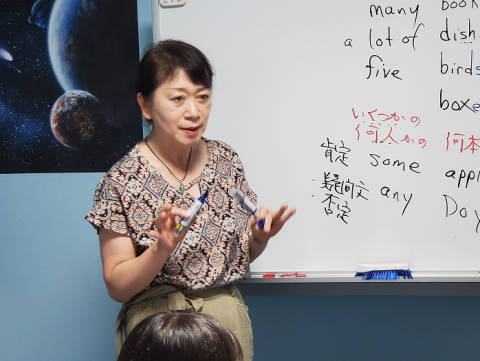 many book
a lot of dish
five birds
boxe
いくつかの
何人かの 何本
肯定 some appl
疑問文 any Do y
否定